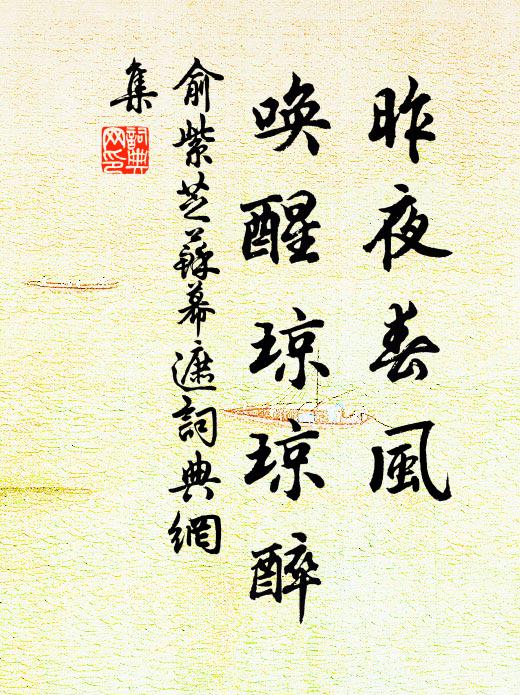 昨夜春風
喚醒琼琼醉
俞紫芝蘇幕遮詞典網
集
詞典網印